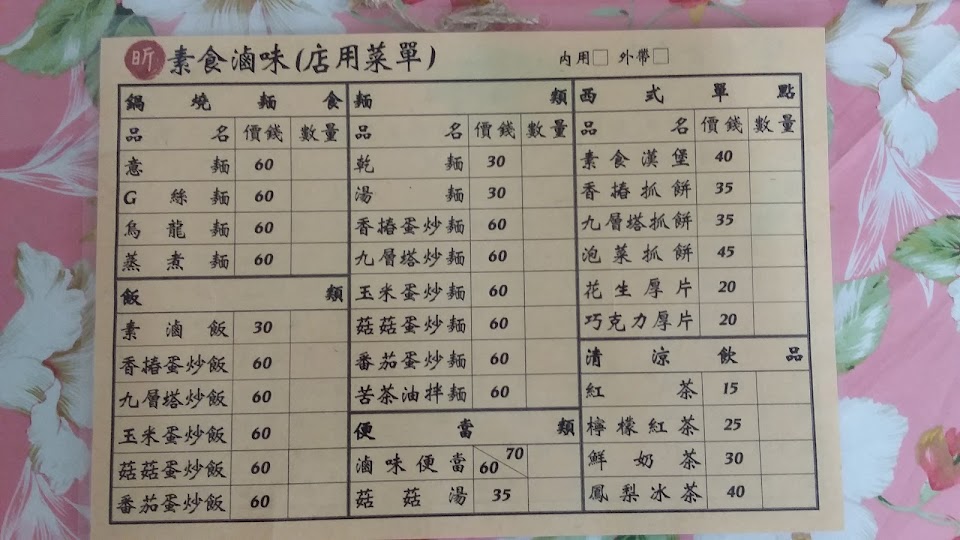 昕 素食滷味(店用菜單) 內用□ 外帶□
鍋燒麵食
品名 價錢 數量
意麵 60
G絲麵 60
烏龍麵 60
蒸煮麵 60
飯類
素滷飯 30
香椿蛋炒飯 60
九層塔炒飯 60
玉米蛋炒飯 60
菇菇蛋炒飯 60
番茄蛋炒飯 60
麵類
品名 價錢 數量
乾麵 30
湯麵 30
香椿蛋炒麵 60
九層塔炒麵 60
玉米蛋炒麵 60
菇菇蛋炒麵 60
番茄蛋炒麵 60
苦茶油拌麵 60
便當類
滷味便當 60 70
菇菇湯 35
西式單點
品名 價錢 數量
素食漢堡 40
香椿抓餅 35
九層塔抓餅 35
泡菜抓餅 45
花生厚片 20
巧克力厚片 20
清涼飲品
紅茶 15
檸檬紅茶 25
鮮奶茶 30
鳳梨冰茶 40